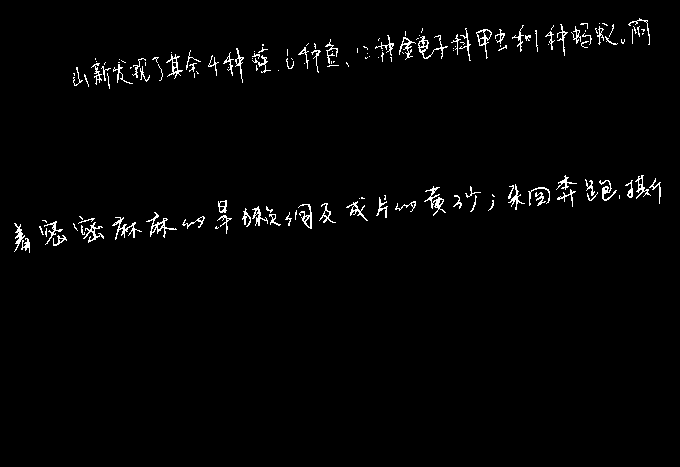 山新发现了其余4种蛙、6种鱼、12种金龟子科甲虫和1种蚂蚁。阿
着密密麻麻的旱獭洞及成片的黄沙；来回奔跑、撕